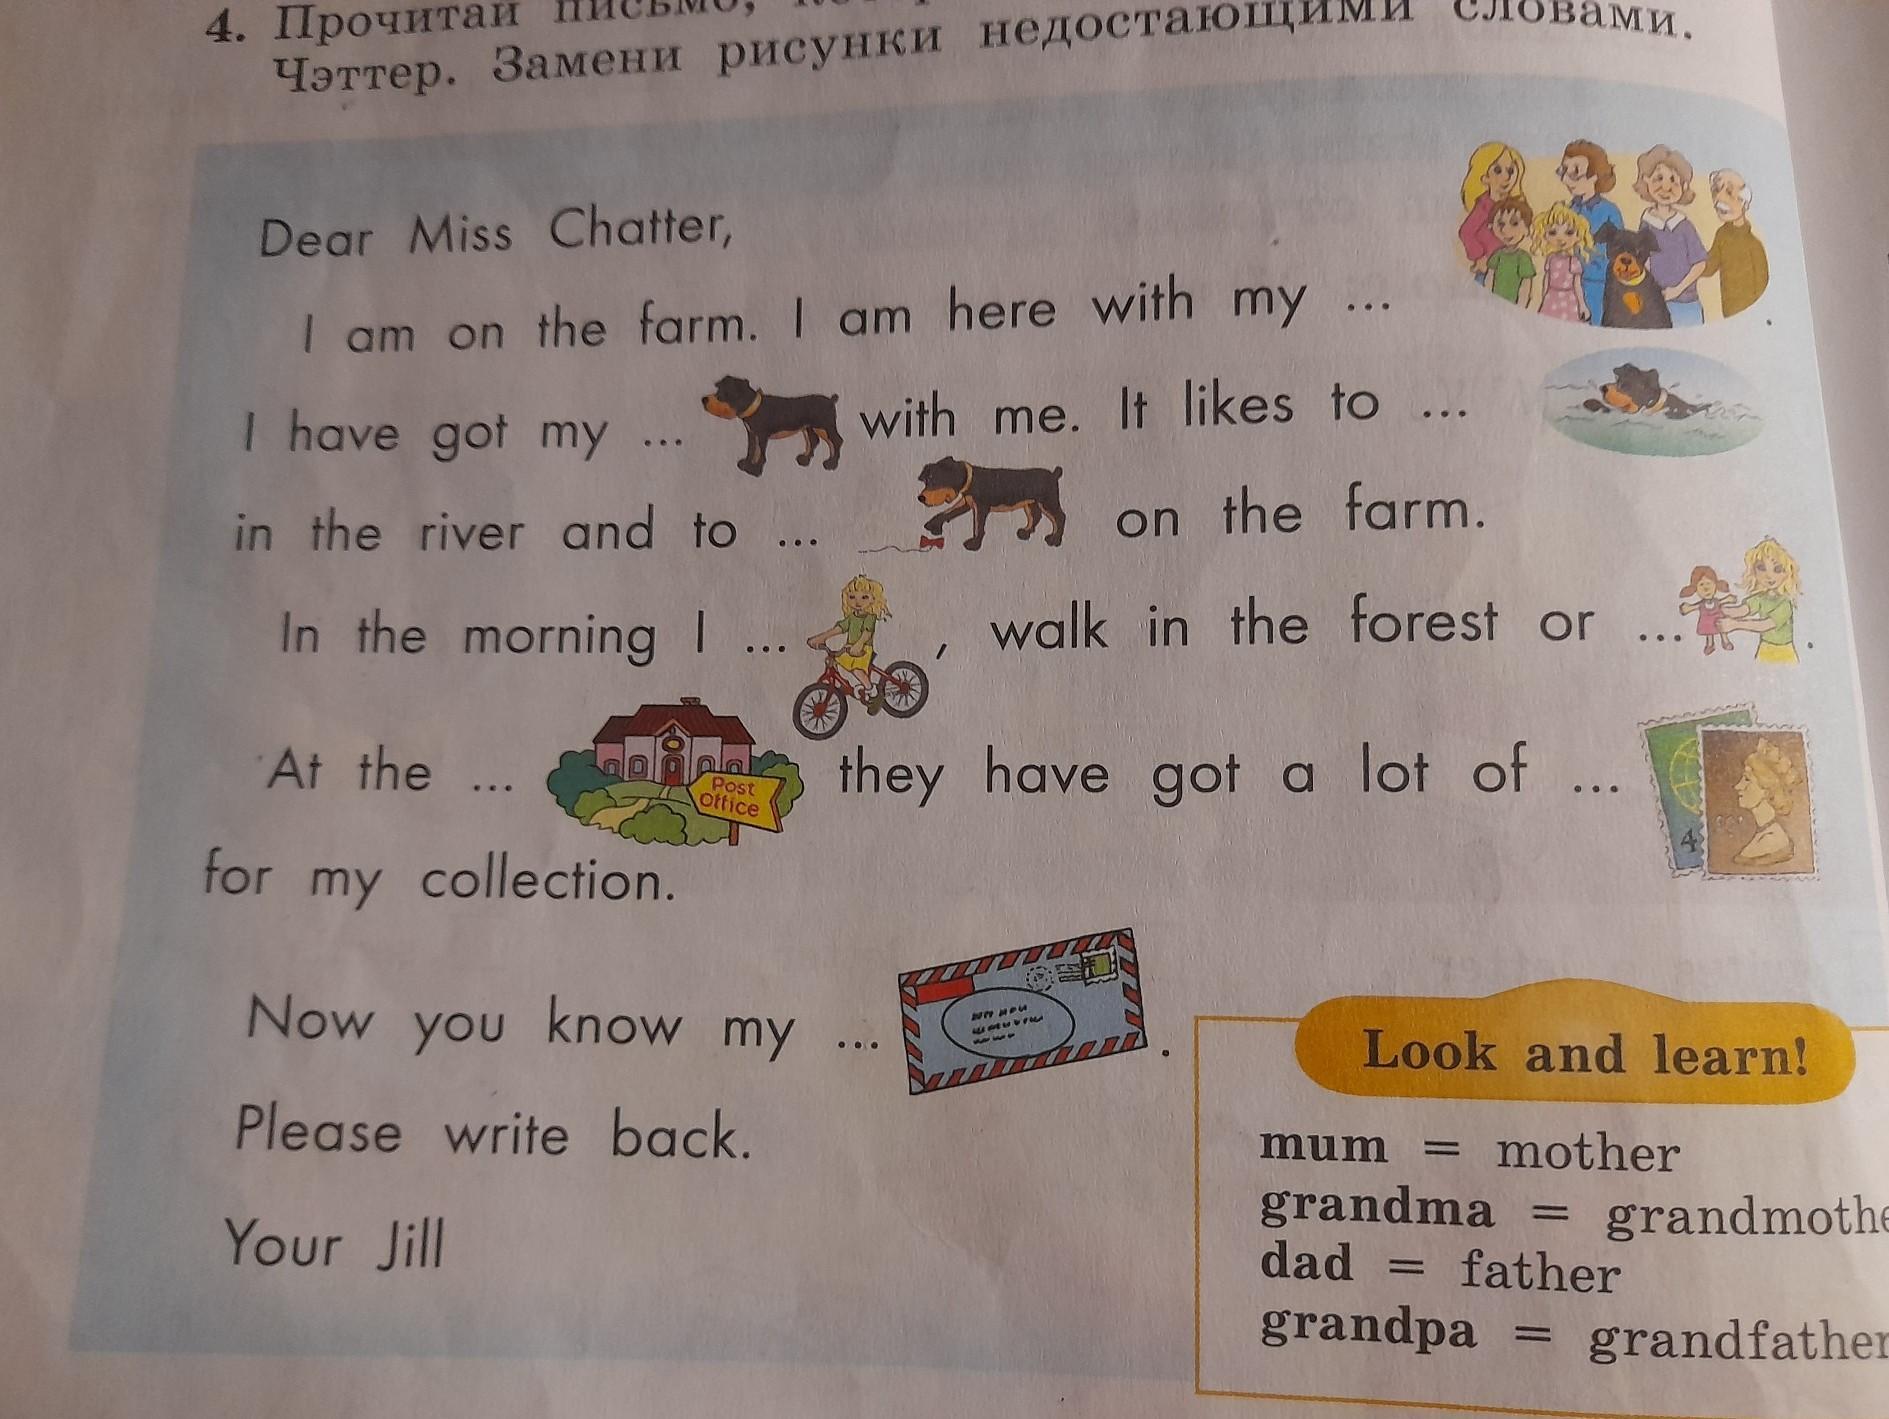 4. Прочитай письмо,
Чэттер. Замени рисунки недостающими словами.
Dear Miss Chatter,
I am on the farm. I am here with my ... .
I have got my ... with me. It likes to ...
in the river and to ... on the farm.
In the morning I ... , walk in the forest or ... .
At the ... Post Office they have got a lot of ...
4
for my collection.
Now you know my ... .
Please write back.
Your Jill
Look and learn!
mum = mother
grandma = grandmothe
dad = father
grandpa = grandfather